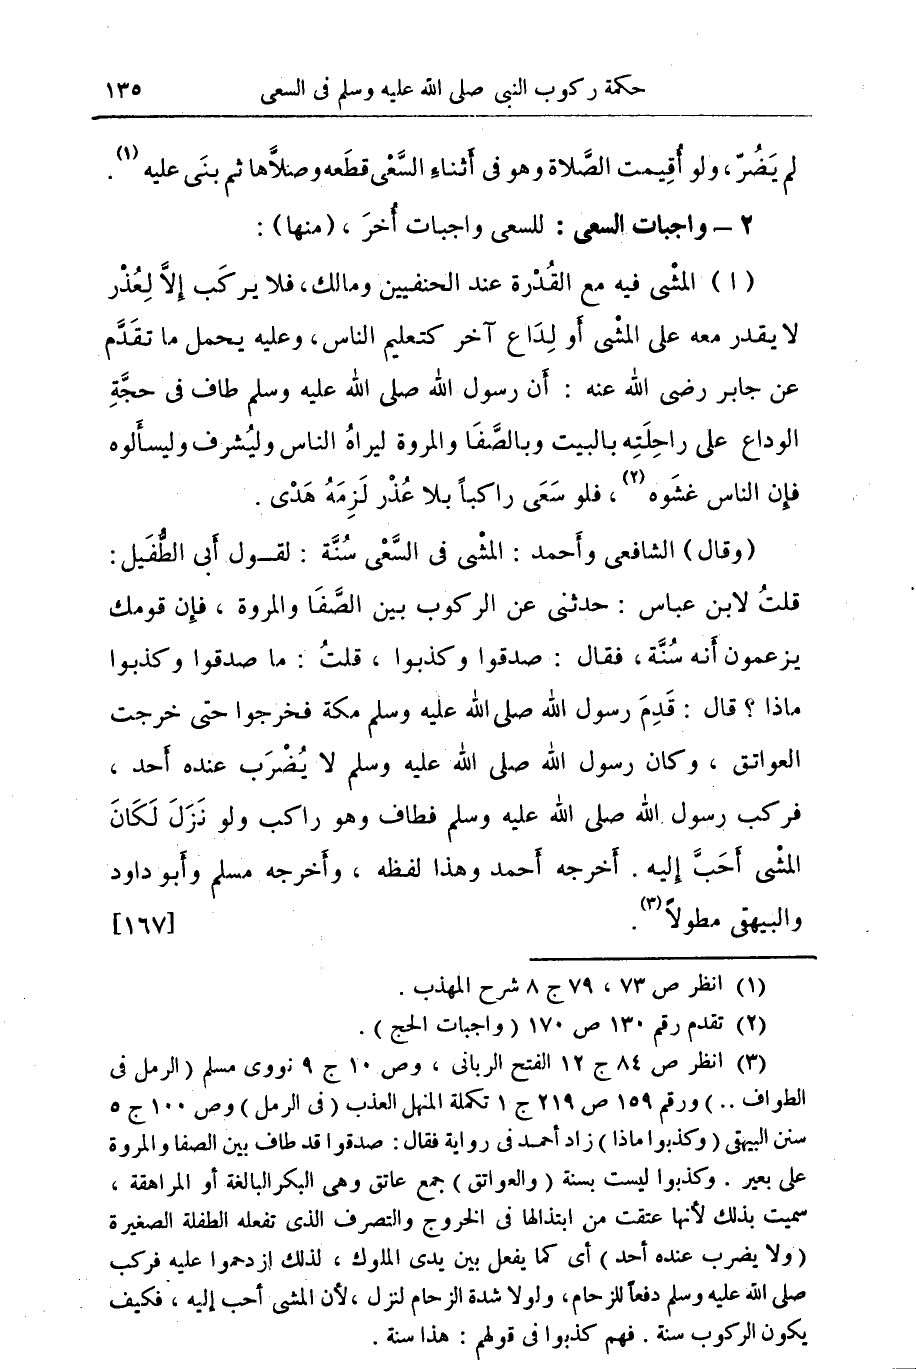 حكمة ركوب النبى صلى الله عليه وسلم فى السعى ١٣٥
لم يَضُرّ ، ولو أُقِيمت الصَّلاة وهو فى أثناءِ السَّعْى قطَعه وصلاَّها ثم بنَى عليه (١) .
٢ – واجبات السعى : للسعى واجبات أُخرَ ، (منها) :
(ا) المشْى فيه مع القُدْرة عند الحنفيين ومالك ، فلا يركَب إلاَّ لِعُذْر
لا يقدر معه على المشْى أو لِدَاع آخر كتعليم الناس ، وعليه يحمل ما تقدَّم
عن جابر رضى الله عنه : أن رسول الله صلى الله عليه وسلم طاف فى حجَّةِ
الوداع على راحِلَتِه بالبيت وبالصَّفَا والمروة ليراهُ الناس وليُشرف وليسألوه
فإن الناس غشَوه (٢) ، فلو سَعَى راكباً بلا عُذْر لَزِمَهُ هَدْى .
(وقال) الشافعى وأحمد : المشْى فى السَّعْى سُنَّة : لقول أبى الطُّفَيل :
قلتُ لابن عباس : حدثنى عن الركوب بين الصَّفَا والمروة ، فإن قومك
يزعمون أنه سُنَّة ، فقال : صدقوا وكذبوا ، قلتُ : ما صدقوا وكذبوا
ماذا ؟ قال : قَدِمَ رسول الله صلى الله عليه وسلم مكة فخرجوا حتى خرجت
العواتق ، وكان رسول الله صلى الله عليه وسلم لا يُضْرَب عنده أحد ،
فركب رسول الله صلى الله عليه وسلم فطاف وهو راكب ولو نَزَلَ لَكَانَ
المشْى أحَبَّ إليه . أخرجه أحمد وهذا لفظه ، وأخرجه مسلم وأبو داود
والبيهقى مطولاً (٣) . [١٦٧]
(١) انظر ص ٧٣ ، ٧٩ ج ٨ شرح المهذب .
(٢) تقدم رقم ١٣٠ ص ١٧٠ ( واجبات الحج ) .
(٣) انظر ص ٨٤ ج ١٢ الفتح الربانى ، وص ١٠ ج ٩ نووى مسلم ( الرمل فى
الطواف .. ) ورقم ١٥٩ ص ٢١٩ ج ١ تكملة المنهل العذب ( فى الرمل ) وص ١٠٠ ج ٥
سنن البيهقى ( وكذبوا ماذا ) زاد أحمد فى رواية فقال : صدقوا قد طاف بين الصفا والمروة
على بعير . وكذبوا ليست بسنة ( والعواتق ) جمع عاتق وهى البكر البالغة أو المراهقة ،
سميت بذلك لأنها عتقت من ابتذالها فى الخروج والتصرف الذى تفعله الطفلة الصغيرة
( ولا يضرب عنده أحد ) أى كما يفعل بين يدى الملوك ، لذلك ازدحموا عليه فركب
صلى الله عليه وسلم دفعاً للزحام ، ولولا شدة الزحام لنزل ، لأن المشى أحب إليه ، فكيف
يكون الركوب سنة . فهم كذبوا فى قولهم : هذا سنة .